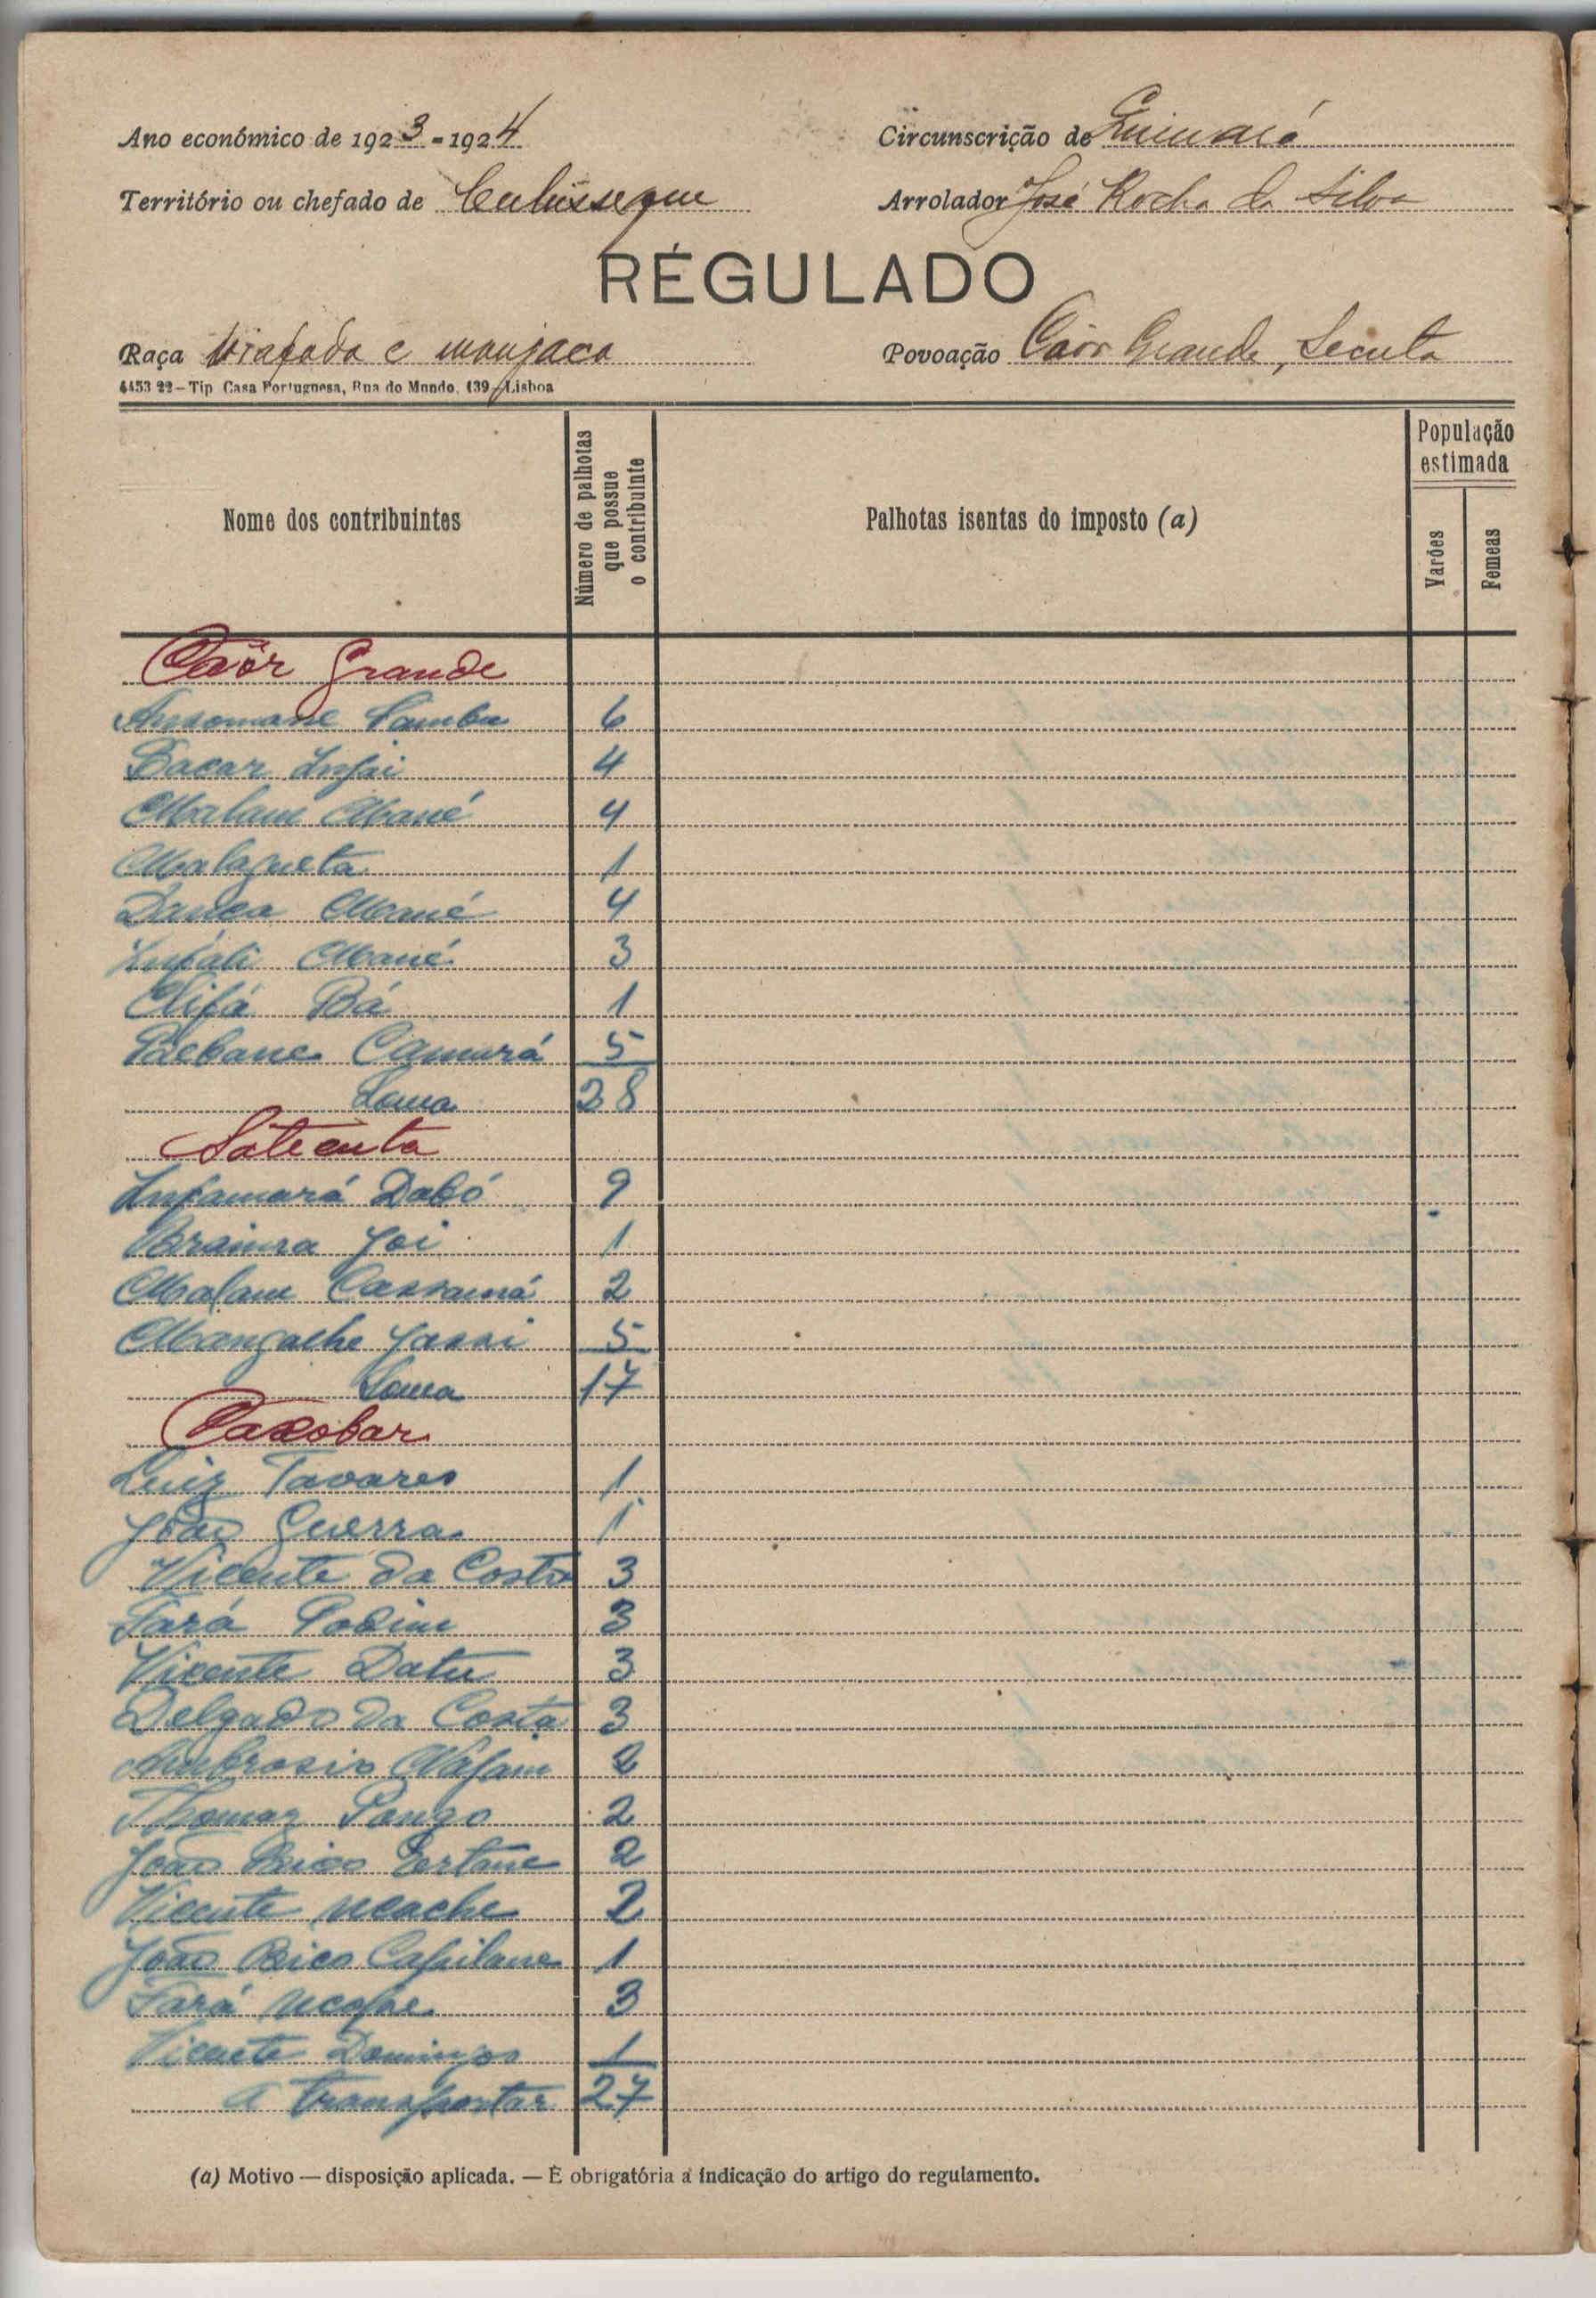 Ano económico de 1923-1924
Circunscrição de
Território ou chefado de Cubisseque
Arrolador José Rocha da Silva
REGULADO
Raça biafada e manjaca
Povoação Caór Grande, Secuta
4453 22 – Tip Casa Portuguesa, Rua do Mundo, 139 – Lisboa
Nome dos contribuintes
Número de palhotas que possue o contribuinte
Palhotas isentas do imposto (a)
População estimada
Varões
Femeas
Caór Grande
Ansomane Sambu 6
Bacar Injai 4
Malam Mané 4
Malagueta 1
Mané 4
Infali Mané 3
Alifá Bá 1
Camará 5
Soma 28
Infamará Dabó 9
Braima Joi 1
Malam Cassamá 2
Mangalhe Jassi 5
Soma 17
Luiz Tavares 1
João Guerra 1
Vicente da Costa 3
3
Vicente Datu 3
Delgado da Costa 3
Ambrosio 2
Thomaz 2
João 2
Vicente 2
João 1
3
Vicente Domingos 1
A transportar 27
(a) Motivo — disposição aplicada. — É obrigatória a indicação do artigo do regulamento.